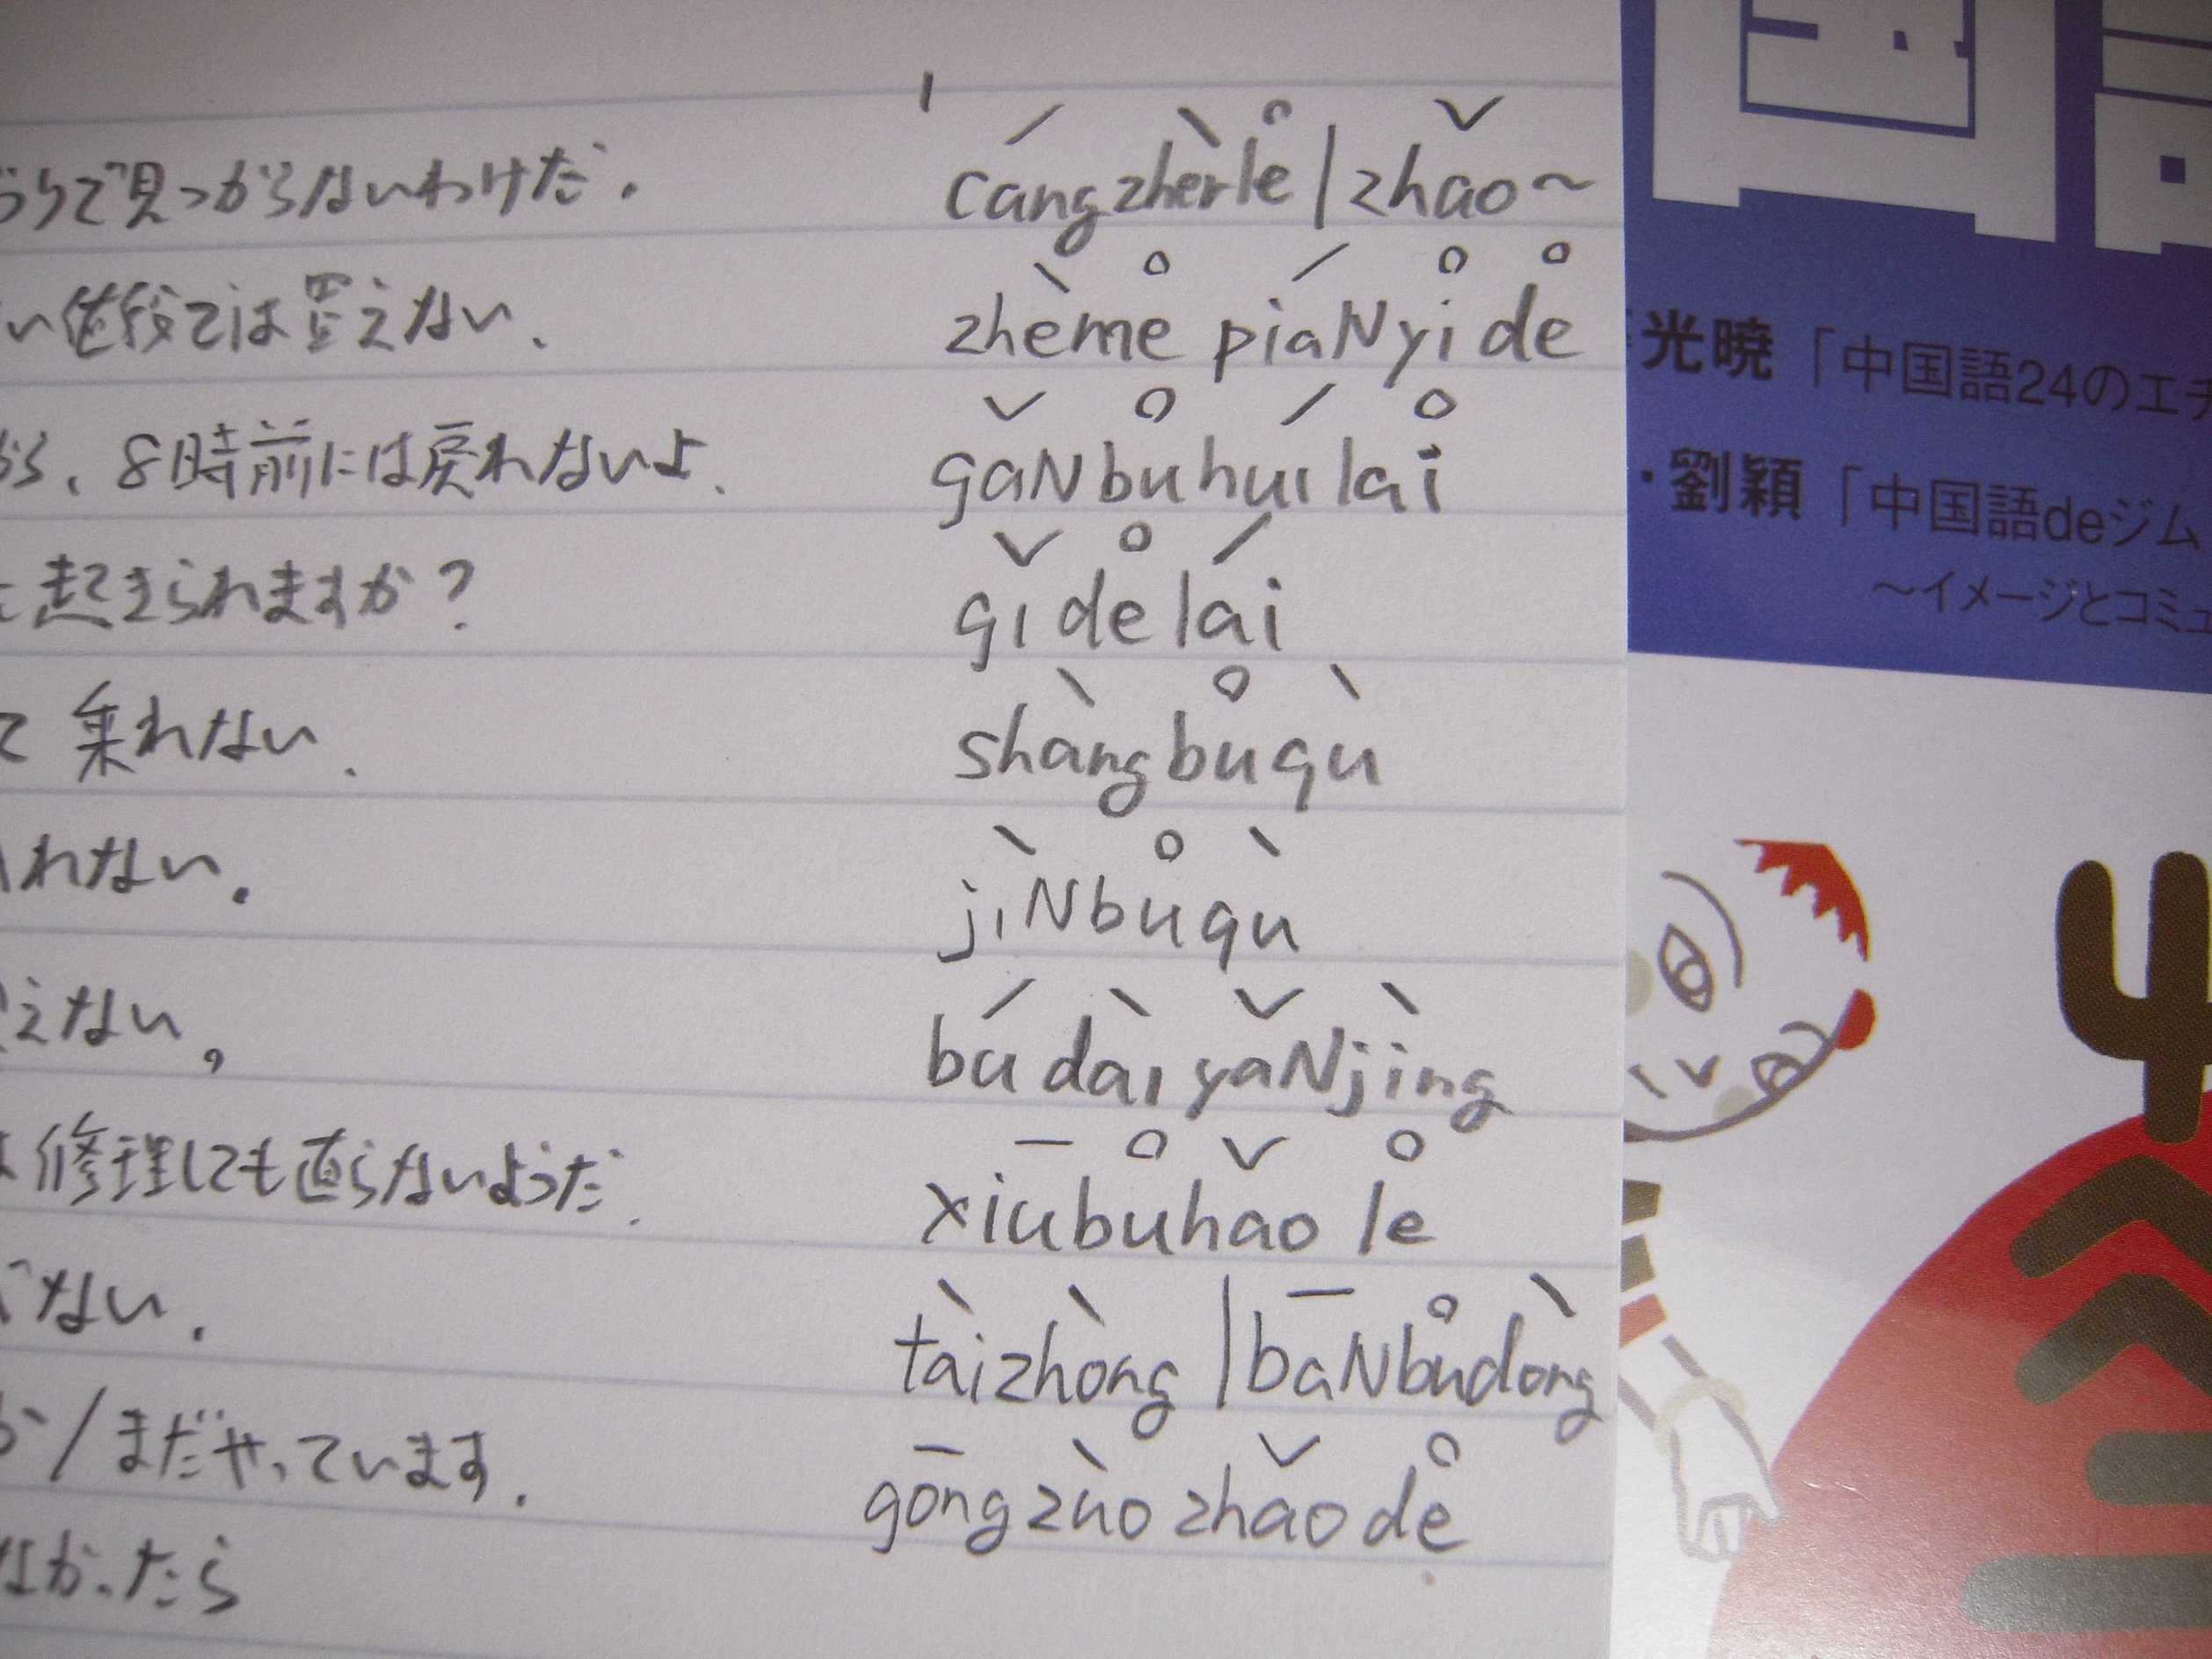 で見つからないわけだ. cángzhèrle | zhǎo~
い値段では買えない. zhème piáNyi de
、8時前には戻れないよ. gǎNbuhuílai
起きられますか? qǐdelái
て乗れない. shàngbuqù
れない. jìNbuqù
えない, búdài yǎNjìng
修理しても直らないようだ. xiūbuhǎo le
ない. tàizhòng | bāNbudòng
か/まだやっています. gōngzuò zhǎode
なかったら
国語
光暁「中国語24のエチ
・劉穎「中国語deジム
～イメージとコミュ